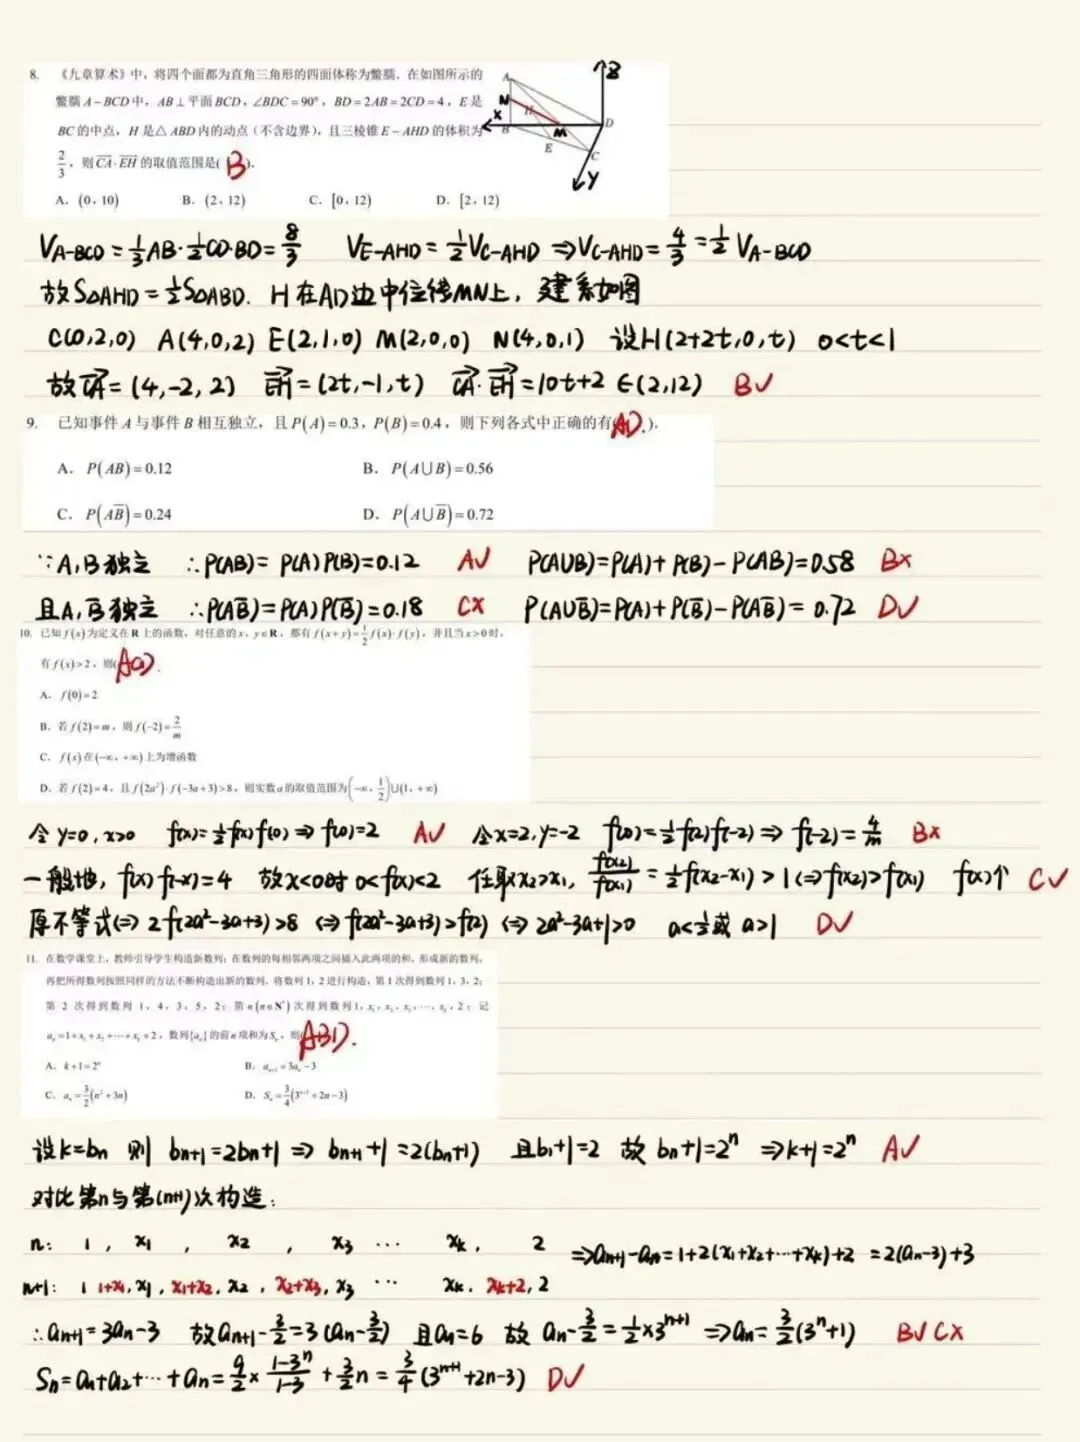 8. 《九章算术》中，将四个面都为直角三角形的四面体称为鳖臑．在如图所示的
鳖臑 A－BCD 中，AB⊥平面BCD，∠BDC＝90°，BD＝2AB＝2CD＝4，E 是
BC 的中点，H 是△ABD 内的动点（不含边界），且三棱锥 E－AHD 的体积为
2/3，则 CA·EH 的取值范围是( B ).
A. (0, 10) B. (2, 12) C. [0, 12) D. [2, 12)
A N X B H M E C D Z Y
V_{A-BCD} = 1/3 AB·1/2 CD·BD = 8/3 V_{E-AHD} = 1/2 V_{C-AHD} ⇒ V_{C-AHD} = 4/3 = 1/2 V_{A-BCD}
故 S△AHD = 1/2 S△ABD. H在AD边中位线MN上，建系如图
C(0,2,0) A(4,0,2) E(2,1,0) M(2,0,0) N(4,0,1) 设H(2+2t,0,t) 0<t<1
故 CA = (4,-2,2) EH = (2t,-1,t) CA·EH = 10t+2 ∈(2,12) B✓
9. 已知事件 A 与事件 B 相互独立，且 P(A)=0.3，P(B)=0.4，则下列各式中正确的有( AD ).
A. P(AB)=0.12 B. P(A∪B)=0.56
C. P(AB̅)=0.24 D. P(A∪B̅)=0.72
∵A,B独立 ∴P(AB)=P(A)P(B)=0.12 A✓ P(A∪B)=P(A)+P(B)-P(AB)=0.58 B×
且A,B̅独立 ∴P(AB̅)=P(A)P(B̅)=0.18 C× P(A∪B̅)=P(A)+P(B̅)-P(AB̅)=0.72 D✓
10. 已知 f(x) 为定义在 R 上的函数，对任意的 x，y∈R，都有 f(x+y)=1/2 f(x)·f(y)，并且当 x>0 时，
有 f(x)>2，则( ACD ).
A. f(0)=2
B. 若 f(2)=m，则 f(-2)=2/m
C. f(x) 在 (-∞，+∞) 上为增函数
D. 若 f(2)=4，且 f(2a²)·f(-3a+3)>8，则实数 a 的取值范围为 (-∞，1/2)∪(1，+∞)
令y=0,x>0 f(x)=1/2 f(x)f(0) ⇒ f(0)=2 A✓ 令x=2,y=-2 f(0)=1/2 f(2)f(-2) ⇒ f(-2)=4/m B×
一般地，f(x)f(-x)=4 故x<0时 0<f(x)<2 任取x2>x1, f(x2)/f(x1) = 1/2 f(x2-x1) > 1 ⇔ f(x2)>f(x1) f(x)↑ C✓
原不等式⇔ 2f(2a²-3a+3)>8 ⇔ f(2a²-3a+3)>f(2) ⇔ 2a²-3a+1>0 a<1/2或a>1 D✓
11. 在数学课堂上，教师引导学生构造新数列：在数列的每相邻两项之间插入此两项的和，形成新的数列，
再把所得数列按照同样的方法不断构造出新的数列．将数列 1，2 进行构造，第 1 次得到数列 1，3，2；
第 2 次得到数列 1，4，3，5，2；第 n(n∈N*) 次得到数列 1，x₁，x₂，x₃，…，x_k，2；记
a_n=1+x₁+x₂+…+x_k+2，数列{a_n} 的前 n 项和为 S_n，则( ABD ).
A. k+1=2ⁿ B. a_{n+1}=3a_n-3
C. a_n=3/2(n²+3n) D. S_n=3/4(3^{n+1}+2n-3)
设k=bn 则 bn+1=2bn+1 ⇒ bn+1+1=2(bn+1) 且b1+1=2 故 bn+1=2ⁿ ⇒k+1=2ⁿ A✓
对比第n与第(n+1)次构造：
n: 1, x1, x2, x3 … xk, 2 ⇒an+1-an=1+2(x1+x2+…+xk)+2 =2(an-3)+3
n+1: 1 1+x1, x1, x1+x2, x2, x2+x3, x3 … xk, xk+2, 2
∴an+1=3an-3 故an+1-3/2=3(an-3/2) 且a1=6 故 an-3/2=1/2×3^{n+1} ⇒an=3/2(3ⁿ+1) B✓ C×
Sn=a1+a2+…+an=9/2×(1-3ⁿ)/(1-3)+3/2n=3/4(3^{n+1}+2n-3) D✓